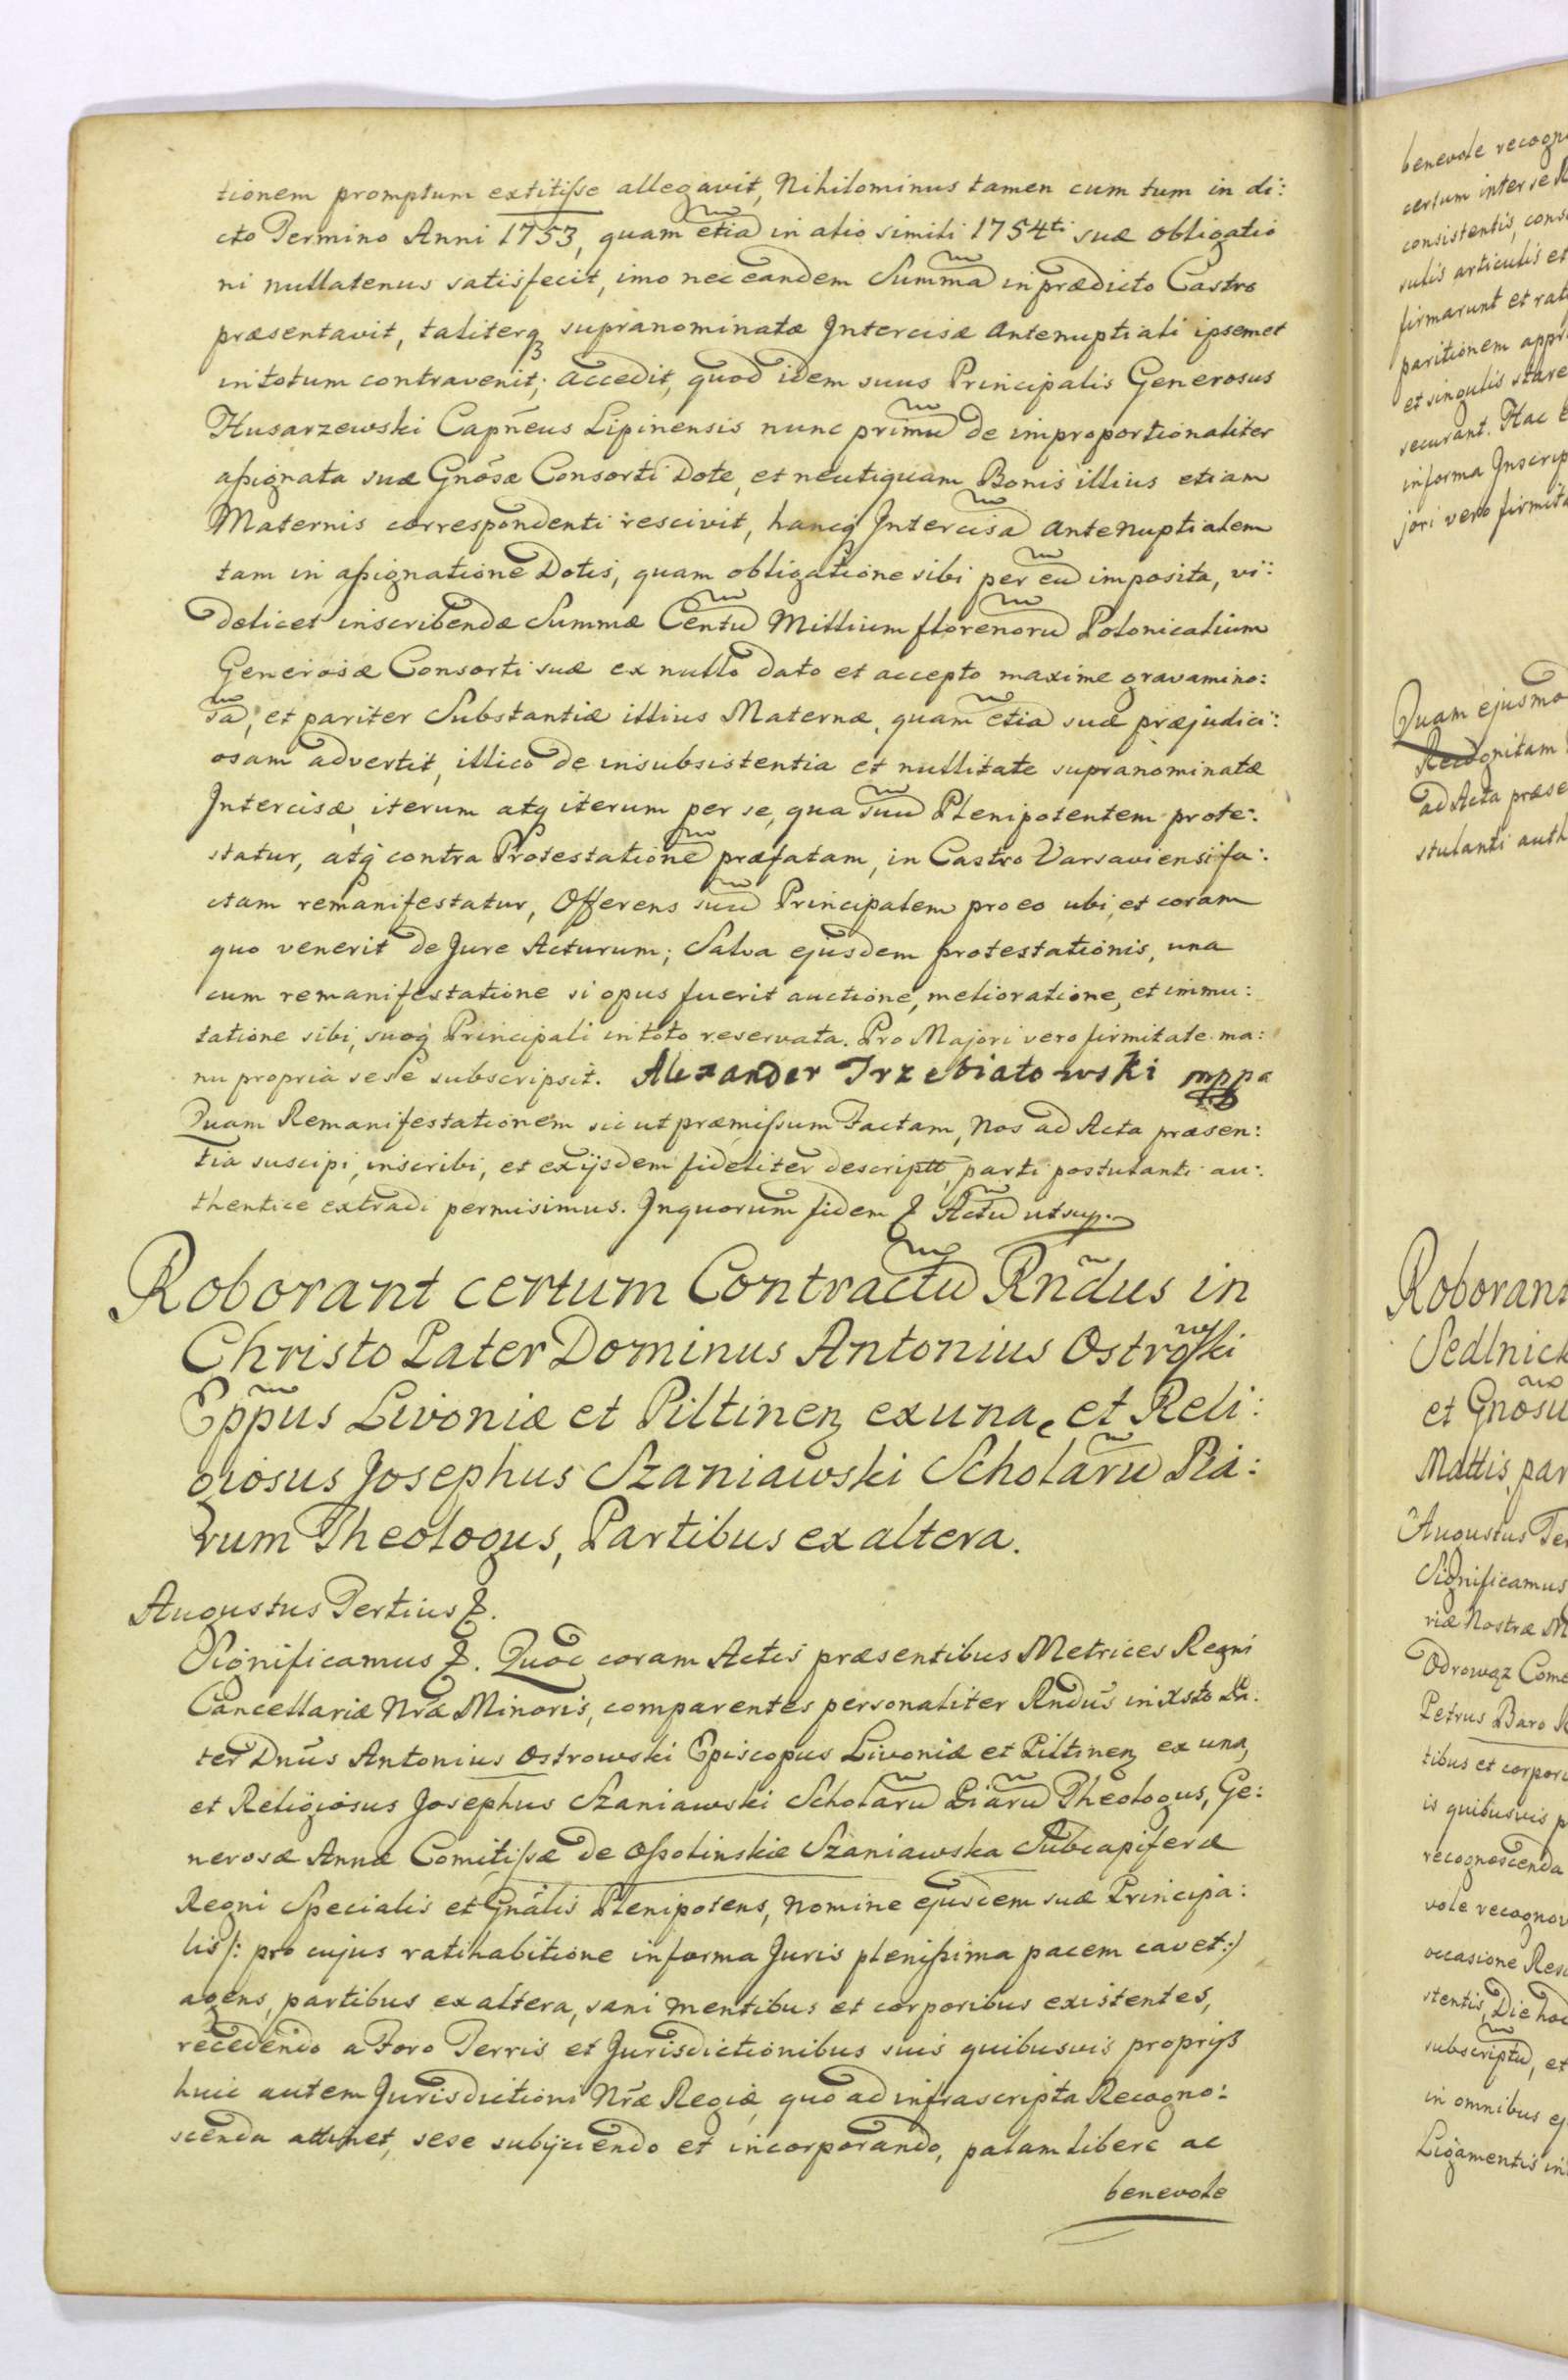 tionem promptum extitiſse allegavit, Nihilominus tamen cum tum in di:
cto Termino Anni 1753, quam etiã in alio simili 1754ti suæ obligatio
ni nullatenus satisfecit, imo nec eandem Summã in prædicto Castro
præsentavit, taliterq3 supranominatæ Intercisæ Antenuptiali ipsemet
in totum contravenit; accedit, quod idem suus Principalis Generosus
Husarzewski Capñeus Lipinensis nunc primũ de improportionaliter
aſsignata suæ Gnõsæ Consorti Dote, et neutiquam Bonis illius etiam
Maternis correspondenti rescivit, hancq Intercisã Antenuptialem
tam in aſsignatione Dotis, quam obligatione sibi per eũ imposita, vi:
delicet inscribendæ Summæ Centũ Millium florenorũ Polonicalium
Generosæ Consorti suæ ex nullo dato et accepto maxime gravamino:
sã, et pariter Substantiæ illius Maternæ, quam etiã suæ præjudici:
osam advertit, illico de insubsistentia et nullitate supranominatæ
Intercisæ, iterum atq iterum per se, qua suũ Plenipotentem prote:
statur, atq contra Protestationẽ præfatam, in Castro Varsaviensi fa:
ctam remanifestatur, Offerens suũ Principalem pro eo ubi, et coram
quo venerit de Jure Acturum; Salva ejusdem protestationis, una
cum remanifestatione si opus fuerit auctione, melioratione, et immu:
tatione sibi, suoq Principali in toto reservata. Pro Majori vero firmitate ma:
nu propria sese subscripsit. Alexander Trzebiatowski mppa
Quam Remanifestationem sic ut præmiſsum Factam, Nos ad Acta præsen:
tia suscipi, inscribi, et ex ijsdem fideliter descriptt, parti postulanti au:
thentice extradi permisimus. In quorum fidem &. Actũ ut sup.
Roborant certum Contractũ Rñdus in
Christo Pater Dominus Antonius Ostrowski
Epp̃us Livoniæ et Piltinen ex una, et Reli:
giosus Josephus Szaniawski Scholarũ Pia:
rum Theologus, Partibus ex altera.
Augustus Tertius &.
Significamus &. Quod coram Actis præsentibus Metrices Regni
Cancellariæ Nræ Minoris, comparentes personaliter Rndũs in Xsto Pa:
ter Dnũs Antonius Ostrowski Episcopus Livoniæ et Piltinen ex una,
et Religiosus Josephus Szaniawski Scholarũ Piarũ Theologus, Ge:
nerosæ Annæ Comitiſsæ de Oſsolinskie Szaniawska Subdapiferæ
Regni Specialis et Gnãlis Plenipotens, nomine ejusdem suæ Principa:
lis /: pro cujus ratihabitione in forma Juris pleniſsima pacem cavet :/
agens, partibus ex altera, sani mentibus et corporibus existentes,
recedendo a Foro Terris et Jurisdictionibus suis quibusvis proprijs
huic autem Jurisdictioni Nræ Regiæ, quo ad infrascripta Recogno:
scenda attinet, sese subijciendo et incorporando, palam libere ac
benevole
benevole
certum inter se
consistentis,
articulis et
firmarunt et
paritionem
et singulis stare
Hac
in forma
jori vero
Quam
Recognitam
ad Acta
Roborant
et
Mattis,
Augustus
Significamus
riæ Nostræ
Odrowąz
Petrus Baro
tibus et
is quibusvis
recognoscenda
vole
occasione
stentis, Die
subscriptũ, et
in omnibus
Ligamentis